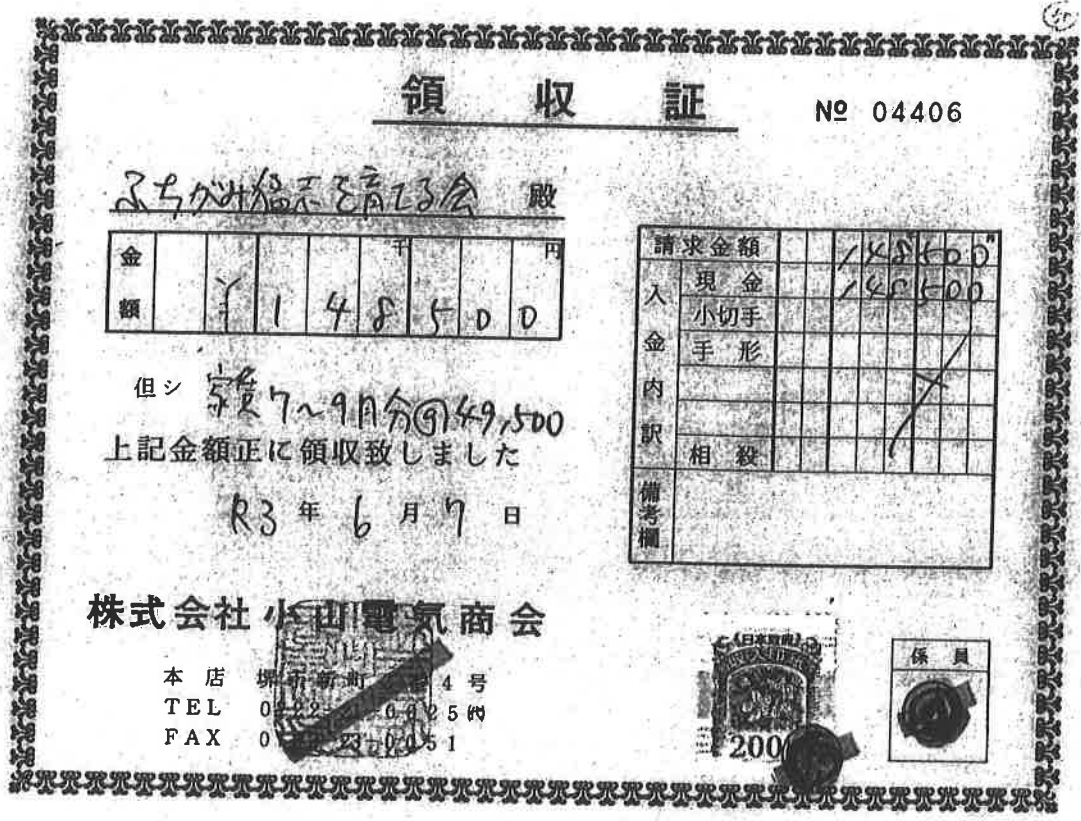 領収証
№ 04406
ふちがみ猛志を育てる会 殿
金額 千 円
¥148500
但シ 家賃7〜9月分@49,500
上記金額正に領収致しました
R3年6月7日
請求金額 148500円
入金内訳
現金 148500
小切手
手形
相殺
備考欄
株式会社小山電気商会
本店 堺市新町 4号
TEL
FAX
日本政府
200
係員